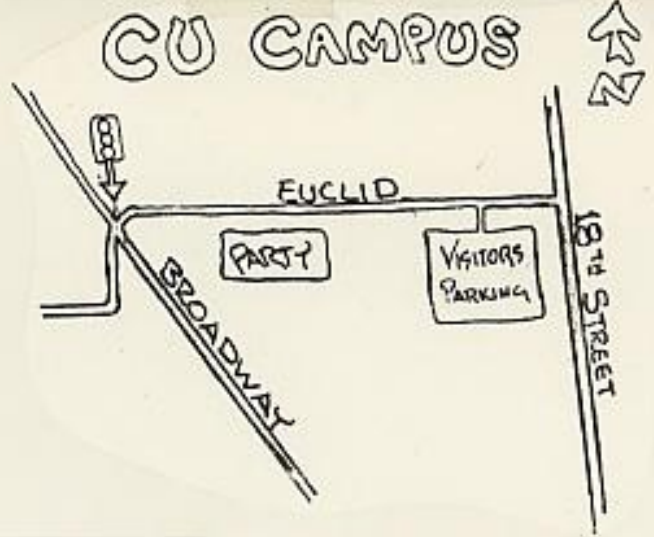 CU CAMPUS
N
EUCLID
PARTY
VISITORS
PARKING
BROADWAY
18TH STREET